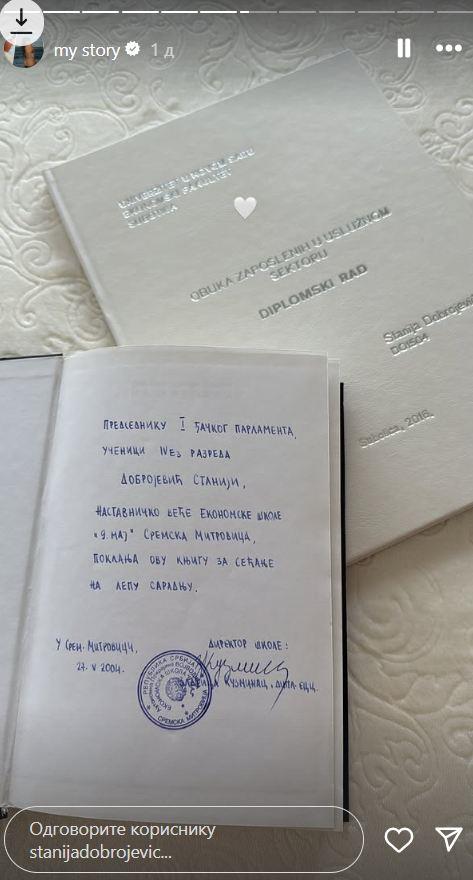 my story 1 д
UNIVERZITET U NOVOM SADU
EKONOMSKI FAKULTET
SUBOTICA
OBUKA ZAPOSLENIH U USLUŽNOM
SEKTORU
DIPLOMSKI RAD
Stanija Dobrojević
Subotica, 2016.
ПРЕДСЕДНИКУ I ЂАЧКОГ ПАРЛАМЕНТА,
УЧЕНИЦИ IVЕ3 РАЗРЕДА
ДОБРОЈЕВИЋ СТАНИЈИ,
НАСТАВНИЧКО ВЕЋЕ ЕКОНОМСКЕ ШКОЛЕ
„9. МАЈ" СРЕМСКА МИТРОВИЦА,
ПОКЛАЊА ОВУ КЊИГУ ЗА СЕЋАЊЕ
НА ЛЕПУ САРАДЊУ.
У СРЕМ. МИТРОВИЦИ, ДИРЕКТОР ШКОЛЕ:
27. V 2004. КУЗМИНАЦ, ДИПЛ. ЕЦЦ.
РЕПУБЛИКА СРБИЈА
ЕКОНОМСКА ШКОЛА
СРЕМСКА МИТРОВИЦА
Одговорите кориснику
stanijadobrojevic...